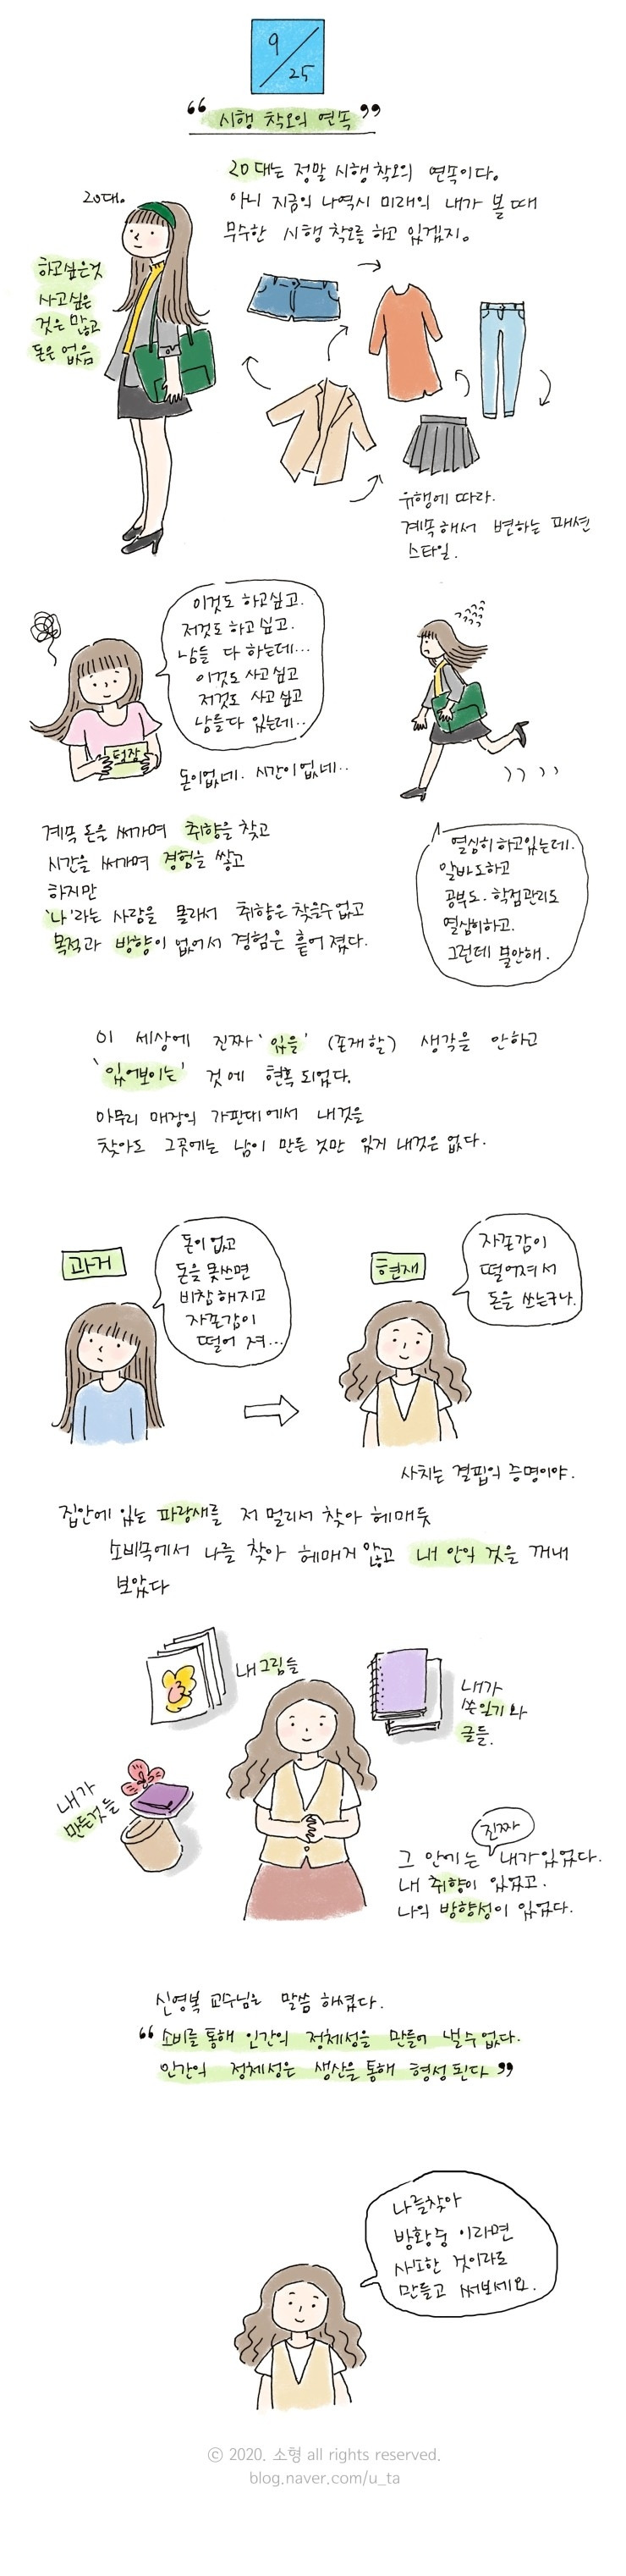 9/25
“시행 착오의 연속”
20대는 정말 시행착오의 연속이다.
아니 지금의 나역시 미래의 내가 볼때
무수한 시행 착오를 하고 있겠지.
20대.
하고싶은것
사고싶은
것은 많고
돈은 없음
유행에 따라.
계속해서 변하는 패션
스타일.
이것도 하고싶고.
저것도 하고싶고.
남들 다 하는데...
이것도 사고싶고
저것도 사고싶고
남들다 있는데..
텅장
돈이없네. 시간이없네..
계속 돈을 써가며 취향을 찾고
시간을 써가며 경험을 쌓고
하지만
'나'라는 사람을 몰라서 취향은 찾을수없고
목적과 방향이 없어서 경험은 흩어졌다.
열심히 하고있는데.
알바도하고
공부도. 학점관리도
열심히하고.
그런데 불안해.
이 세상에 진짜 '있을' (존재할) 생각을 안하고
'있어보이는' 것에 현혹되었다.
아무리 매장의 가판대에서 내것을
찾아도 그곳에는 남이 만든 것만 있지 내것은 없다.
과거
돈이 없고
돈을 못쓰면
비참해지고
자존감이
떨어져...
현재
자존감이
떨어져서
돈을 쓰는구나.
사치는 결핍의 증명이야.
집안에 있는 파랑새를 저 멀리서 찾아 헤매듯
소비속에서 나를 찾아 헤매지 않고 내 안의 것을 꺼내
보았다
내그림들
내가
쓴일기와
글들.
내가
만든것들
진짜
그 안에는 내가있었다.
내 취향이 있었고.
나의 방향성이 있었다.
신영복 교수님은 말씀하셨다.
“소비를 통해 인간의 정체성을 만들어 낼수없다.
인간의 정체성은 생산을 통해 형성된다”
나를찾아
방황중 이라면
사소한 것이라도
만들고 써보세요.
ⓒ 2020. 소형 all rights reserved.
blog.naver.com/u_ta